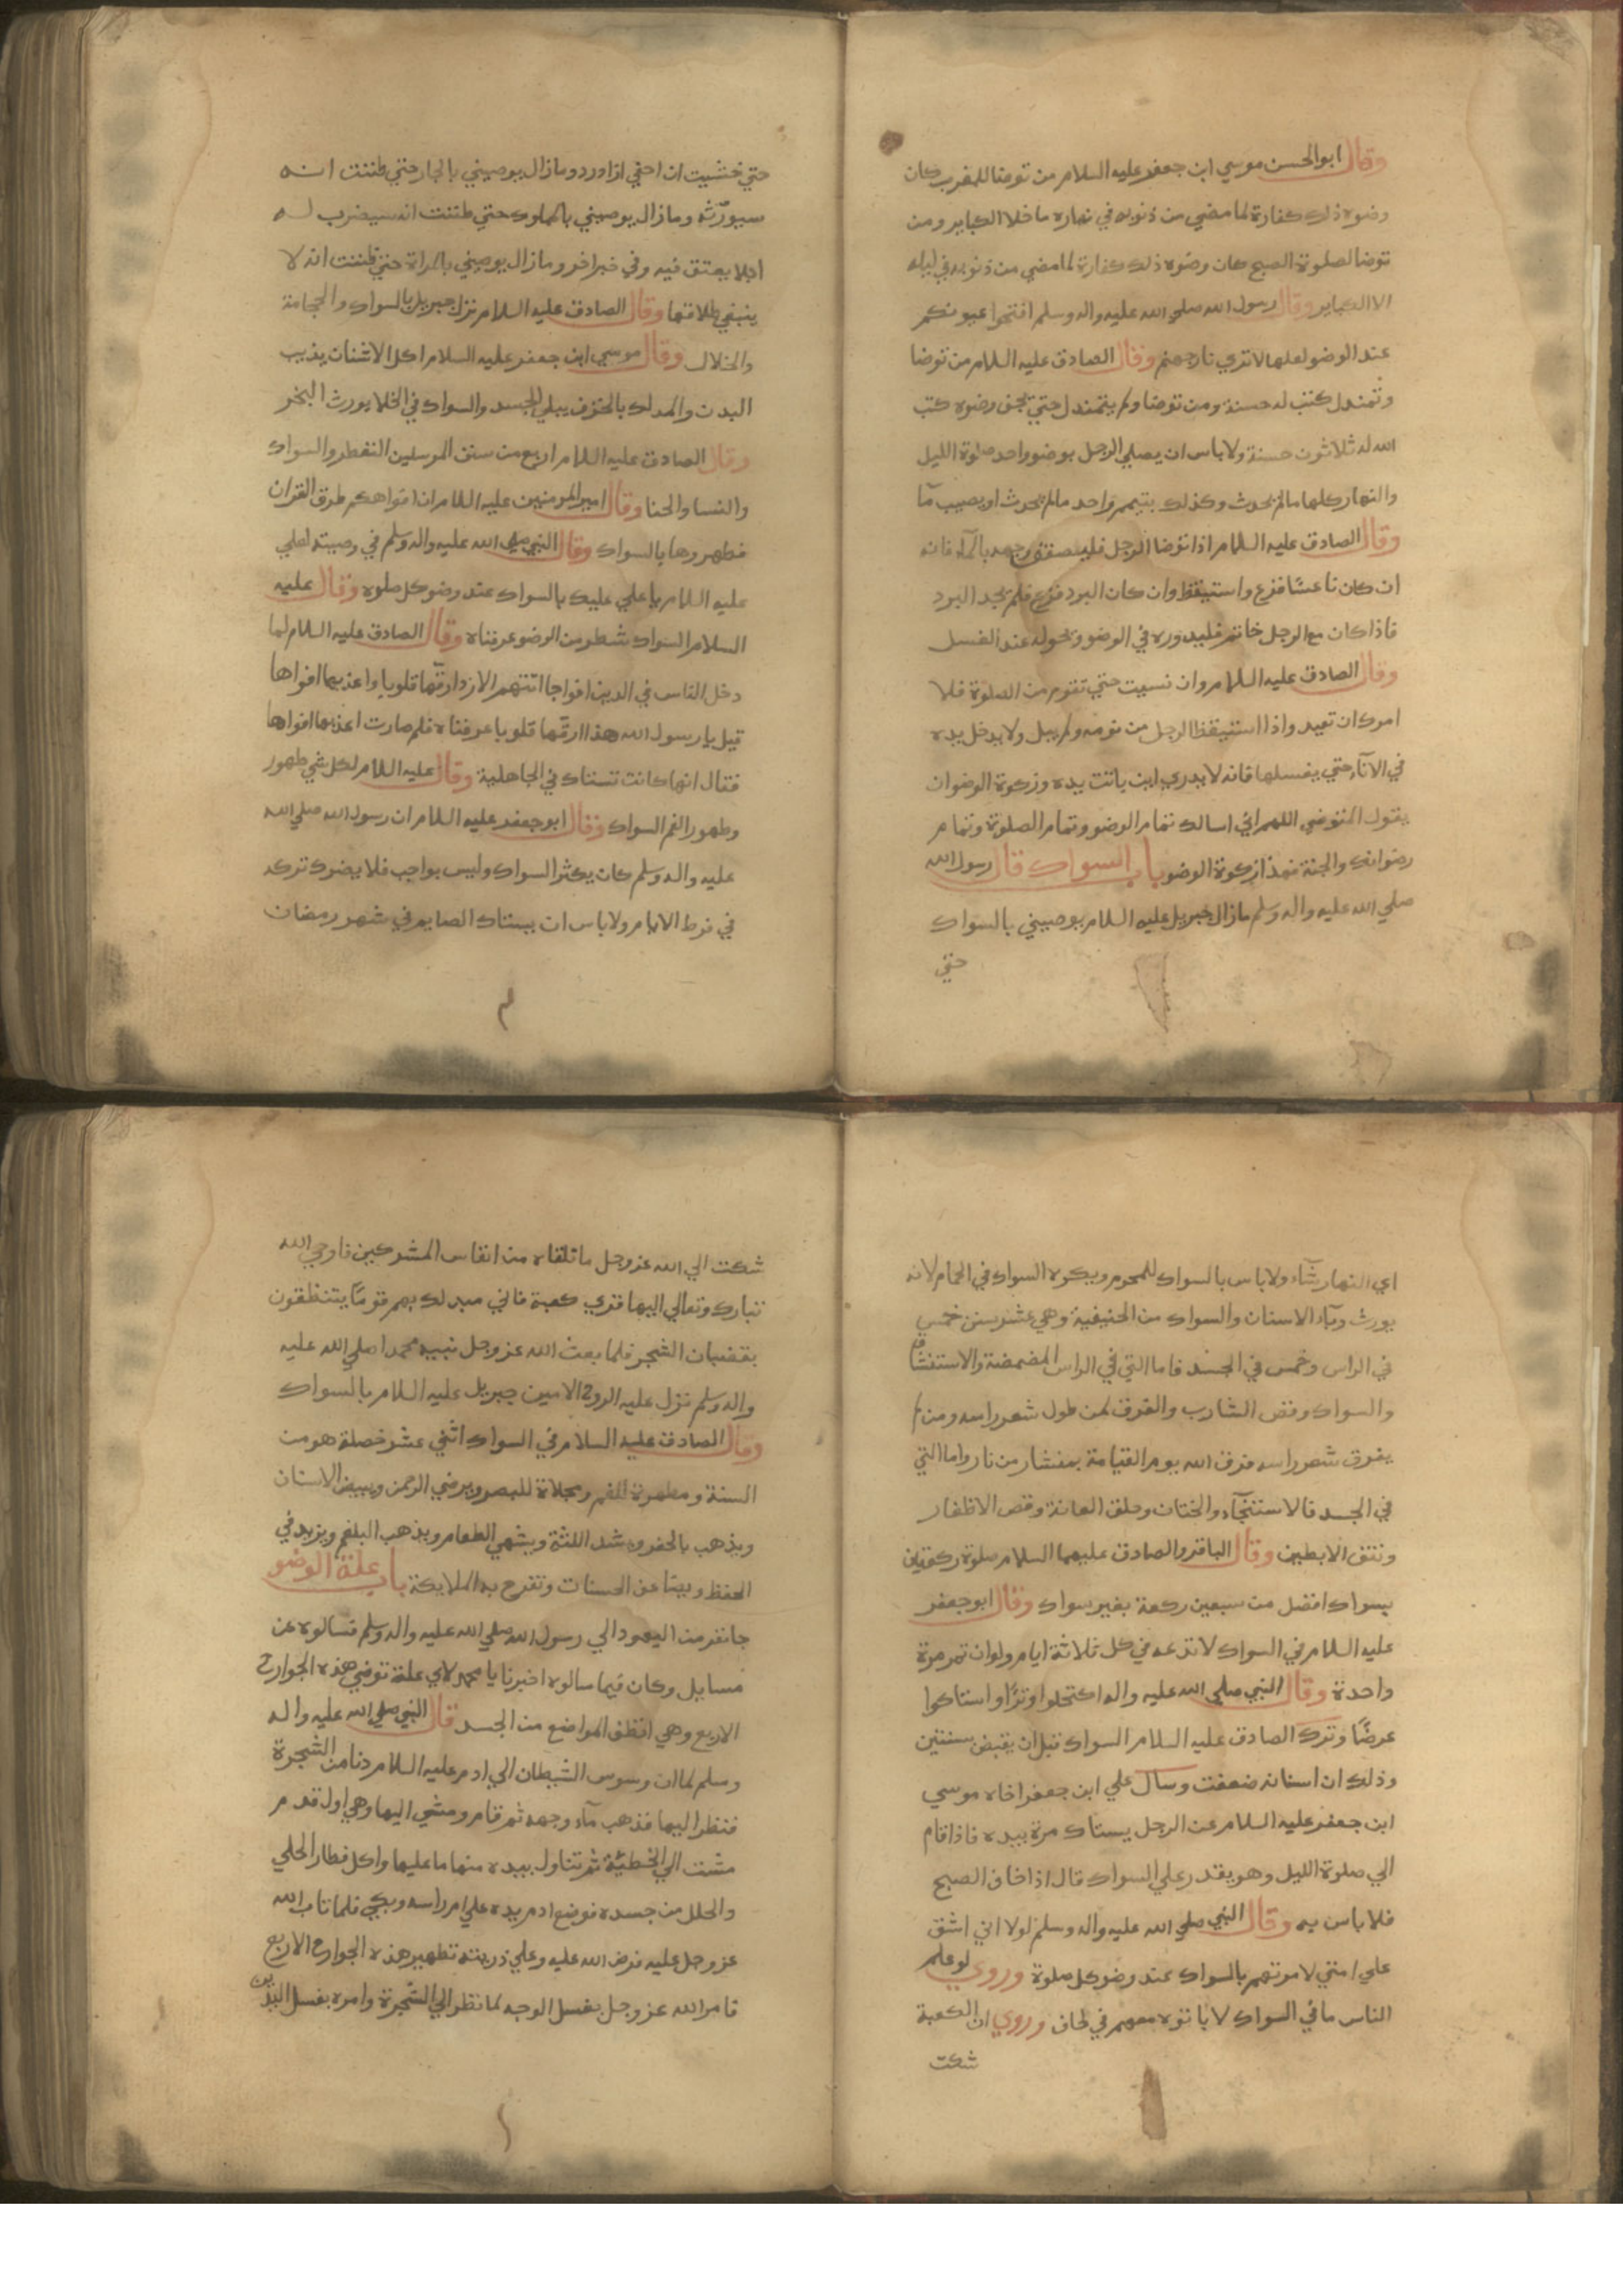 وقال ابو الحسن موسي ابن جعفر عليه السلام من توضا للمغرب كان
وضوه ذلك كفارة لما مضي من ذنوبه في نهاره ما خلا الكباير ومن
توضا لصلوة الصبح كان وضوه ذلك كفارة لما مضي من ذنوبه في ليله
الا الكباير وقال رسول الله صلي الله عليه واله وسلم افتحوا عيونكم
عند الوضو لعلها لا تري نار جهنم وقال الصادق عليه السلام من توضا
وتمندل كتب له حسنة ومن توضا ولم يتمندل حتي يجف وضوه كتب
الله له ثلاثون حسنة ولا باس ان يصلي الرجل بوضو واحد صلوة الليل
والنهار كلها ما لم يحدث وكذلك بتيمم واحد ما لم يحدث او يصيب مآ
وقال الصادق عليه السلام اذا توضا الرجل فليصفق وجهه بالمآء فانه
ان كان ناعسًا فزع واستيقظ وان كان البرد فزع فلم يجد البرد
فاذا كان مع الرجل خاتم فليدوره في الوضو ويحوله عند الغسل
وقال الصادق عليه السلام وان نسيت حتي تقوم من الصلوة فلا
امرك ان تعيد واذا استيقظ الرجل من نومه ولم يبل ولا يدخل يده
في الانآء حتي يغسلها فانه لا يدري اين باتت يده وزكوة الوضو ان
يقول المتوضي اللهم اني اسالك تمام الوضو وتمام الصلوة وتمام
رضوانك والجنة فهذا زكوة الوضو باب السواك قال رسول الله
صلي الله عليه واله وسلم مازال جبريل عليه السلام يوصيني بالسواك
حتي
حتي خشيت ان احفي او ادرد ومازال يوصيني بالجار حتي ظننت انه
سيورّثه ومازال يوصيني بالمملوك حتي ظننت انه سيضرب له
اجلا يعتق فيه وفي خبر اخر ومازال يوصيني بالمراة حتي ظننت انه لا
ينبغي طلاقها وقال الصادق عليه السلام نزل جبريل بالسواك والحجامة
والخلال وقال موسي ابن جعفر عليه السلام اكل الاشنان يذيب
البدن والمدلك بالخزف يبلي الجسد والسواك في الخلا يورث البخر
وقال الصادق عليه السلام اربع من سنن المرسلين التعطر والسواك
والنسا والحنا وقال امير المومنين عليه السلام ان افواهكم طرق القران
فطهروها بالسواك وقال النبي صلي الله عليه واله وسلم في وصيته لعلي
عليه السلام يا علي عليك بالسواك عند وضو كل صلوة وقال عليه
السلام السواك شطر من الوضو عرفناه وقال الصادق عليه السلام لما
دخل الناس في الدين افواجا اتتهم الازد ارقّها قلوبا واعذبها افواها
قيل يا رسول الله هذا ارقّها قلوبا عرفناه فلم صارت اعذبها افواها
فقال انها كانت تستاك في الجاهلية وقال عليه السلام لكل شي طهور
وطهور الفم السواك وقال ابو جعفر عليه السلام ان رسول الله صلي الله
عليه واله وسلم كان يكثر السواك وليس بواجب فلا يضرك تركه
في فرط الايام ولا باس ان يستاك الصايم في شهر رمضان
اي النهار شآء ولا باس بالسواك للمحرم ويكره السواك في الحمام لانه
يورث وبآء الاسنان والسواك من الحنيفية وهي عشر سنن خمس
في الراس وخمس في الجسد فاما التي في الراس المضمضة والاستنشاق
والسواك وقص الشارب والفرق لمن طول شعر راسه ومن لم
يفرق شعر راسه فرق الله يوم القيامة بمنشار من نار واما التي
في الجسد فالاستنجآء والختان وحلق العانة وقص الاظفار
ونتف الابطين وقال الباقر والصادق عليهما السلام صلوة ركعتين
بسواك افضل من سبعين ركعة بغير سواك وقال ابو جعفر
عليه السلام في السواك لا تدعه في كل ثلاثة ايام ولو ان تمر مرة
واحدة وقال النبي صلي الله عليه واله اكتحلوا وترًا واستاكوا
عرضًا وترك الصادق عليه السلام السواك قبل ان يقبض بسنتين
وذلك ان اسنانه ضعفت وسال علي ابن جعفر اخاه موسي
ابن جعفر عليه السلام عن الرجل يستاك مرة بيده فاذا قام
الي صلوة الليل وهو يقدر علي السواك قال اذا خاف الصبح
فلا باس به وقال النبي صلي الله عليه واله وسلم لولا اني اشق
علي امتي لامرتهم بالسواك عند وضو كل صلوة وروي لو علم
الناس ما في السواك لا باتوه معهم في لحاف وروي ان الكعبة
شكت
شكت الي الله عز وجل ما تلقاه من انفاس المشركين فاوحي الله
تبارك وتعالي اليها قري كعبة فاني مبدلك بهم قومًا يتنظفون
بقضبان الشجر فلما بعث الله عز وجل نبيه محمدا صلي الله عليه
واله وسلم نزل عليه الروح الامين جبريل عليه السلام بالسواك
وقال الصادق عليه السلام في السواك اثني عشر خصلة هو من
السنة ومطهرة للفم ومجلاة للبصر ويرضي الرحمن ويبيض الاسنان
ويذهب بالحفر ويشد اللثة ويشهي الطعام ويذهب البلغم ويزيد في
الحفظ ويضاعف الحسنات وتفرح به الملايكة باب علة الوضو
جا نفر من اليهود الي رسول الله صلي الله عليه واله وسلم فسالوه عن
مسايل وكان فيما سالوه اخبرنا يا محمد لاي علة توضي هذه الجوارح
الاربع وهي انظف المواضع من الجسد قال النبي صلي الله عليه واله
وسلم لما ان وسوس الشيطان الي ادم عليه السلام دنا من الشجرة
فنظر اليها فذهب مآء وجهه ثم قام ومشي اليها وهي اول قدم
مشت الي الخطيئة ثم تناول بيده منها ما عليها واكل فطار الحلي
والحلل من جسده فوضع ادم يده علي ام راسه وبكي فلما تاب الله
عز وجل عليه فرض الله عليه وعلي ذريته تطهير هذه الجوارح الاربع
فامر الله عز وجل بغسل الوجه لما نظر الي الشجرة وامره بغسل اليدين